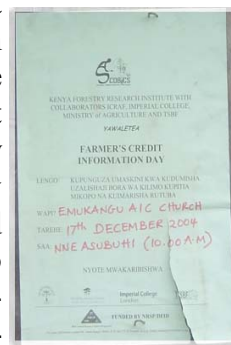 KENYA FORESTRY RESEARCH INSTITUTE WITH
COLLABORATORS ICRAF, IMPERIAL COLLEGE,
MINISTRY of AGRICULTURE AND TSBF
YAWALETEA
FARMER'S CREDIT
INFORMATION DAY
LENGO: KUPUNGUZA UMASKINI KWA KUDUMISHA
UZALISHAJI BORA WA KILIMO KUPITIA
MIKOPO NA KUIMARISHA RUTUBA
WAPI: EMUKANGU AIC CHURCH
TAREHE: 17th DECEMBER 2004
SAA: NNE ASUBUHI (10.00 A.M)
NYOTE MWAKARIBISHWA
Imperial College
London